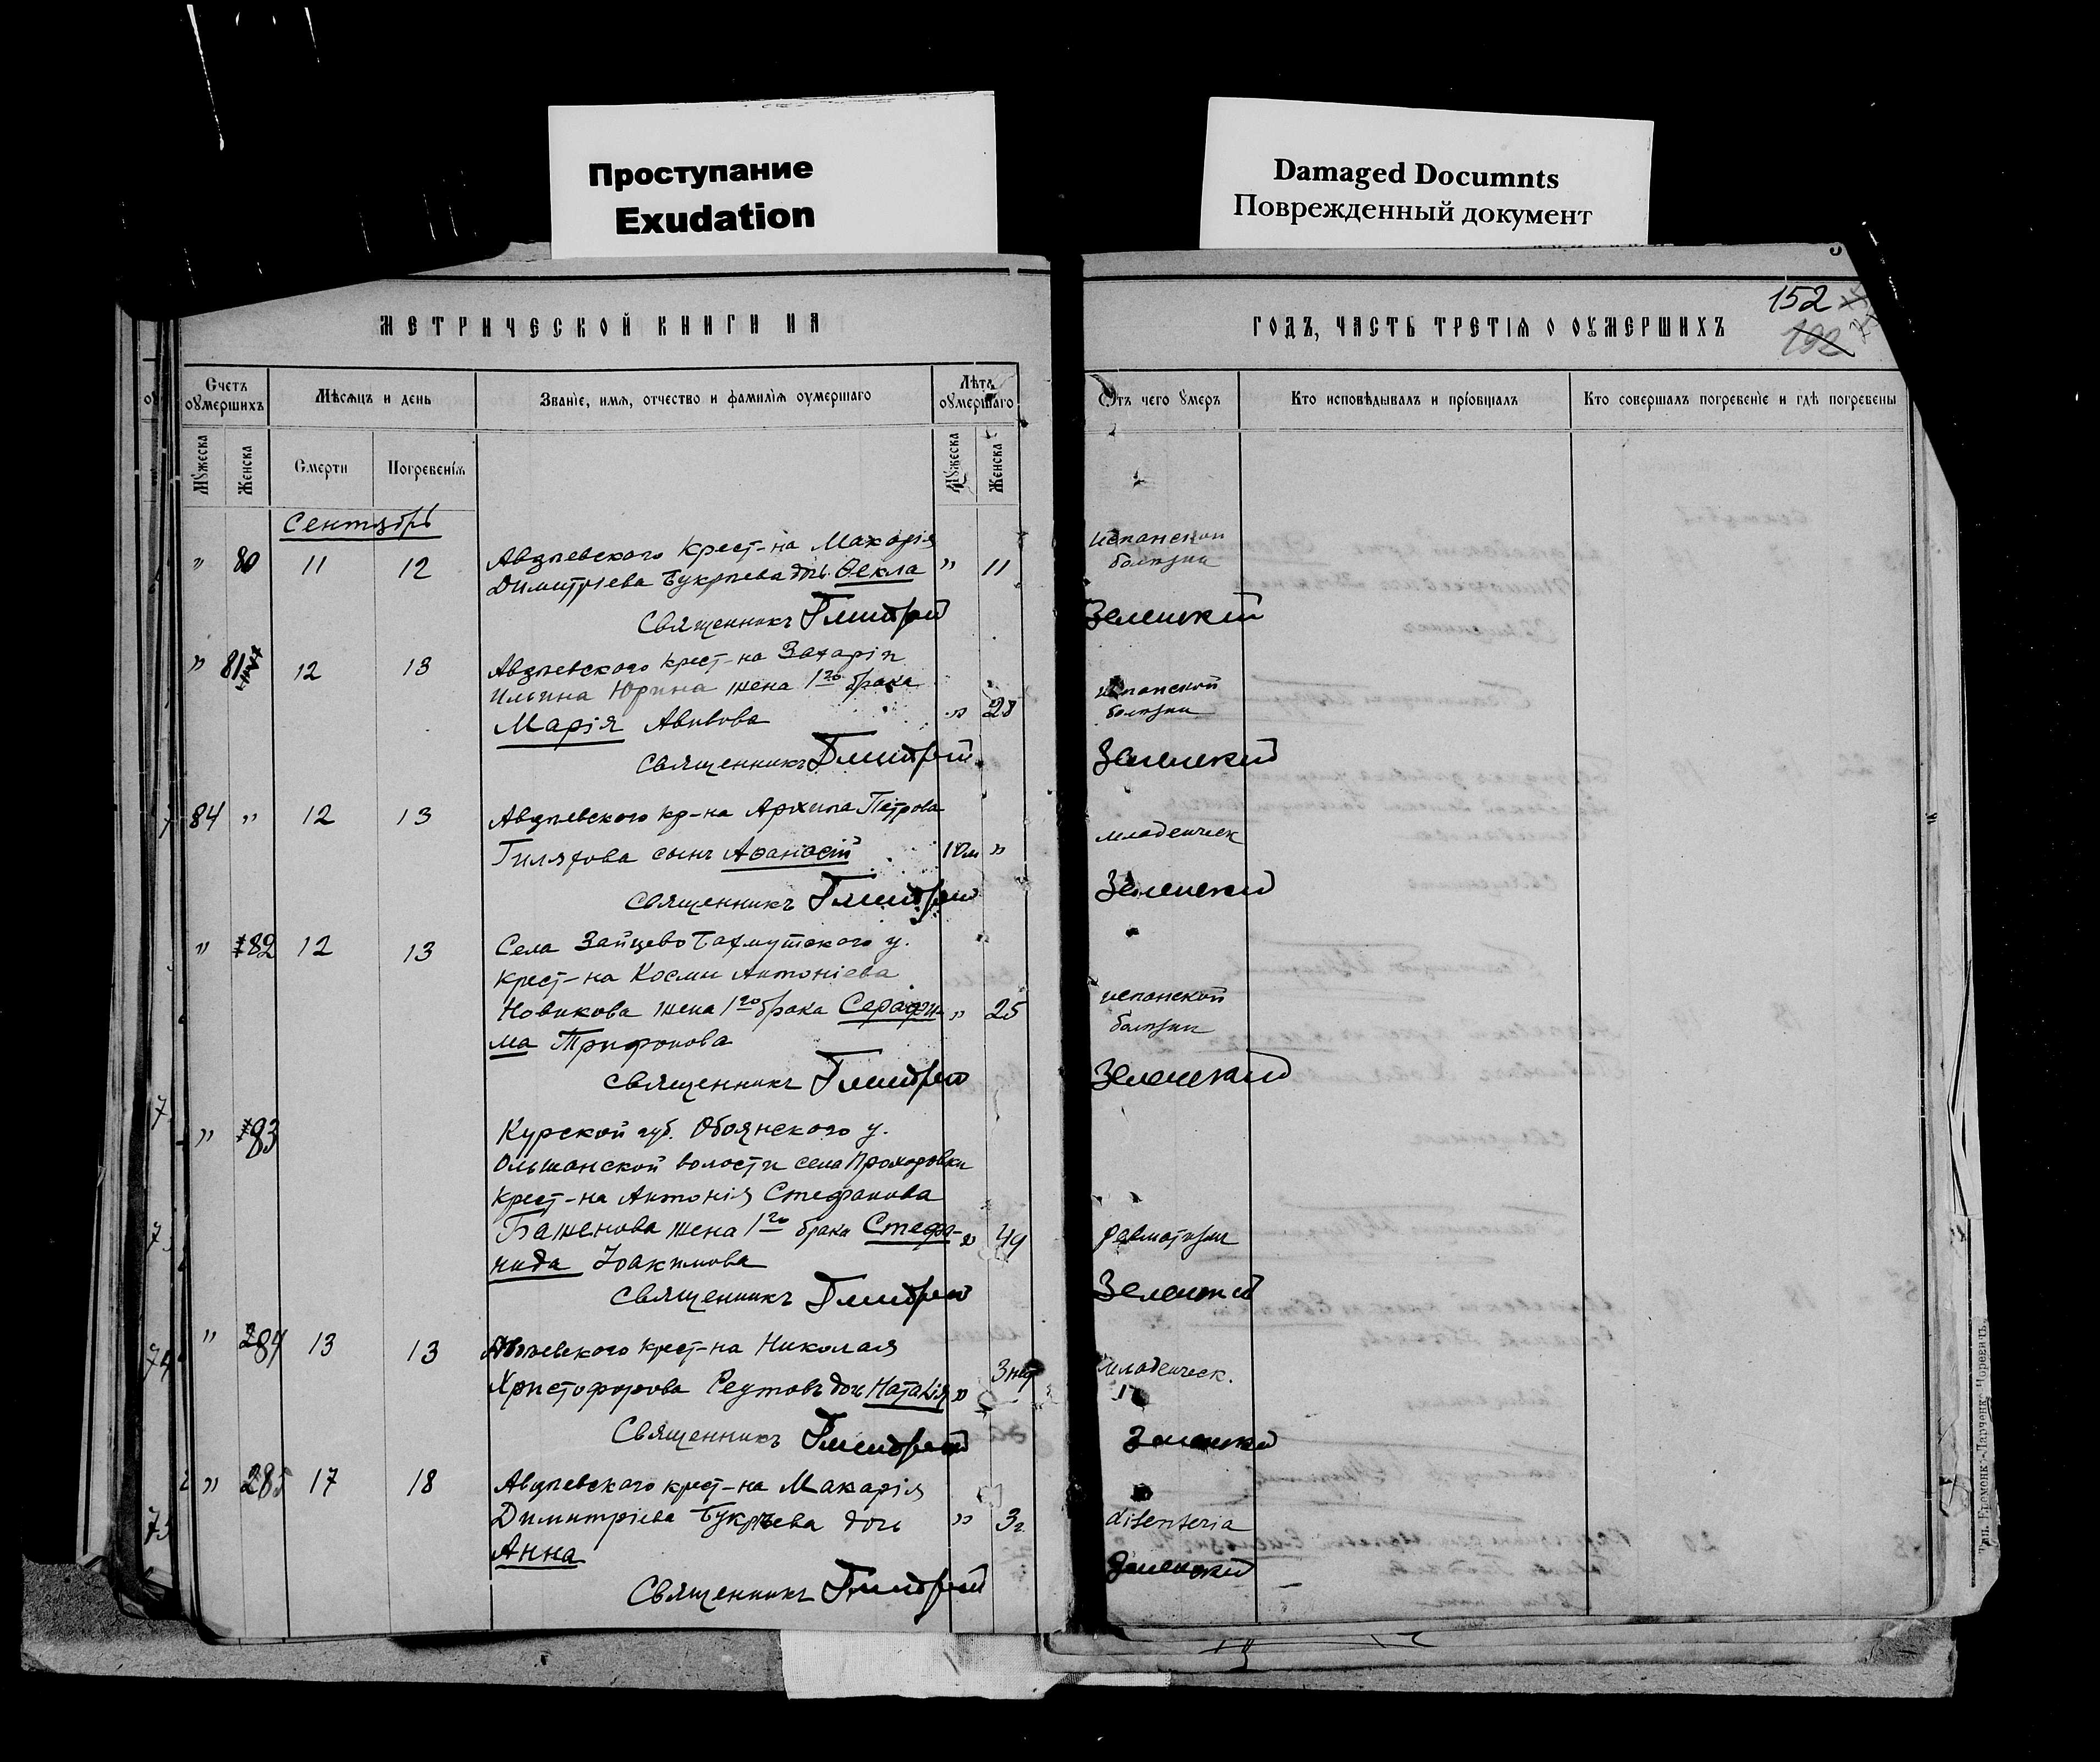 Проступание
Exudation
Damaged Documnts
Поврежденный документ
МЕТРИЧЕСКОЙ КНИГИ НА
ГОДЪ, ЧАСТЬ ТРЕТІЯ О ОУМЕРШИХЪ
152
192
Счетъ оумершихъ
Мѣсяцъ и день
Званіе, имя, отчество и фамилія оумершаго
Лѣта оумершаго
Отъ чего умеръ
Кто исповѣдывалъ и пріобщалъ
Кто совершалъ погребеніе и гдѣ погребены
Мужеска
Женска
Смерти
Погребенія
Мужеска
Женска
Сентябрь
" 80 11 12 Авдѣевскаго крест-на Макарія
Димитріева Букрѣева дочь Ѳекла " 11
испанской
болѣзни
Священникъ Дмитрій Зеленскій
" 81 12 13 Авдѣевскаго крест-на Захаріи
Ильина Юрина жена 1го брака
Марія Авивова " 28
испанской
болѣзни
Священникъ Дмитрій Зеленскій
84 " 12 13 Авдѣевскаго кр-на Архипа Петрова
Гиляхова сынъ Аѳанасій "
младенческ
Священникъ Дмитрій Зеленскій
" 82 12 13 Села Зайцево Бахмутскаго у.
крест-на Космы Антоніева
Новикова жена 1го брака Серафи- " 25
ма Трифонова
испанской
болѣзни
Священникъ Дмитрій Зеленскій
" 83 Курской губ. Обоянскаго у.
Ольшанской волости села Прохоровки
крест-на Антонія Стефанова
Баженова жена 1го брака Стефа- " 49
нида Іоакимова
ревматизм
Священникъ Дмитрій Зеленскій
" 84 13 13 Авдѣевскаго крест-на Николая
Христофорова Реутовъ дочь Наталія " 3 нед
младенческ.
Священникъ Дмитрій Зеленскій
" 85 17 18 Авдѣевскаго крест-на Макарія
Димитріева Букрѣева дочь " 3г.
Анна
disenteria
Священникъ Дмитрій Зеленскій